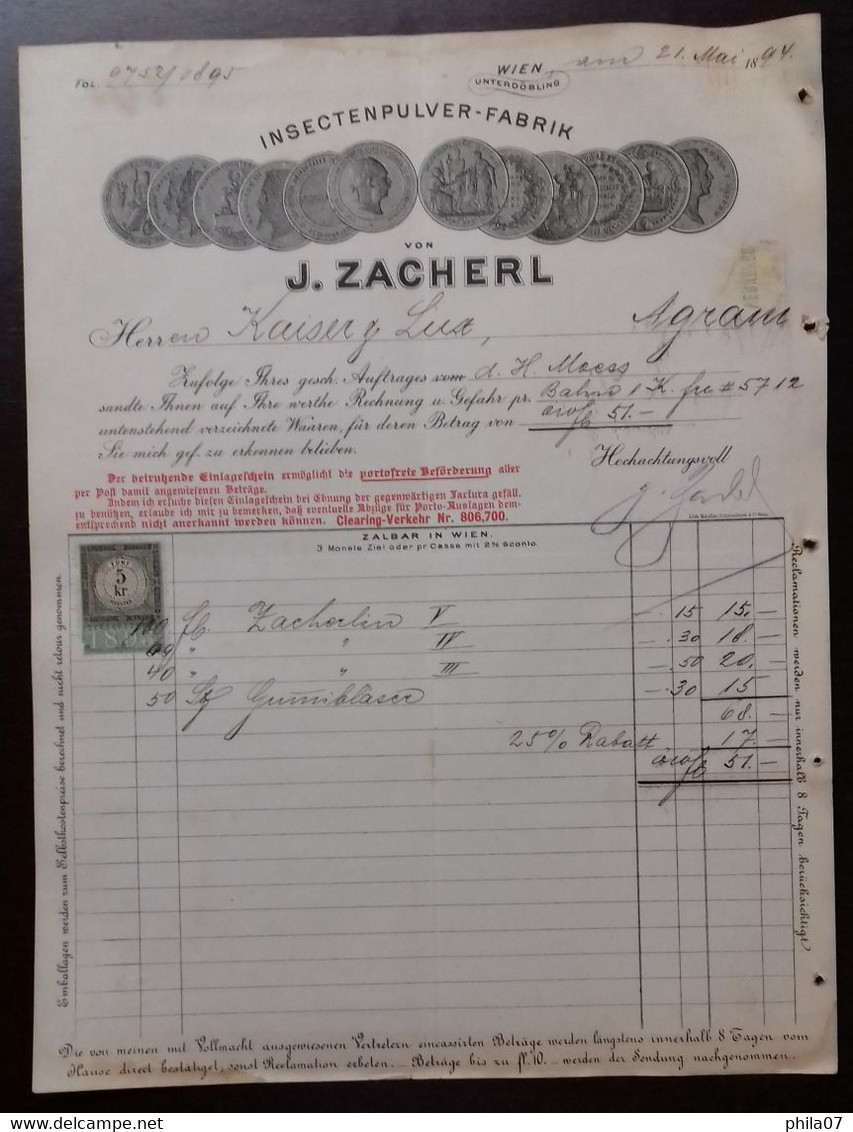 Fol. 0752/0895
WIEN, am 21. Mai 1894.
UNTERDÖBLING
INSECTENPULVER-FABRIK
VON
J. ZACHERL
Herren Kaiser & Lux, Agram
Zufolge Ihres gesch. Auftrages vom d. H. Moess
sandte Ihnen auf Ihre werthe Rechnung u. Gefahr pr. Bahn 1 K. # 5712
untenstehend verzeichnete Waaren, für deren Betrag von öwfl 51.–
Sie mich gef. zu erkennen belieben.
Hochachtungsvoll
Der beiruhende Einlageschein ermöglicht die portofreie Beförderung aller
per Post damit angewiesenen Beträge.
Indem ich ersuche diesen Einlageschein bei Ebnung der gegenwärtigen Factura gefäll.
zu benützen, erlaube ich mir zu bemerken, daß eventuelle Abzüge für Porto-Auslagen dem-
entsprechend nicht anerkannt werden können. Clearing-Verkehr Nr. 806,700.
ZALBAR IN WIEN.
3 Monate Ziel oder pr Cassa mit 2% Sconto.
5
kr
100 fl. Zacherlin V –.15 15.–
60 " " IV –.30 18.–
40 " " III –.50 20.–
50 St Gumiblaser –.30 15
68.–
25% Rabatt 17.–
öwfl 51.–
Emballagen werden zum Selbstkostenpreise berechnet und nicht retour genommen.
Reclamationen werden nur innerhalb 8 Tagen berücksichtigt.
Die von meinen mit Vollmacht ausgewiesenen Vertretern eincassirten Beträge werden längstens innerhalb 8 Tagen vom
Hause direct bestätiget, sonst Reclamation erbeten. — Beträge bis zu fl. 10.— werden der Sendung nachgenommen.
delcampe.net
phila07